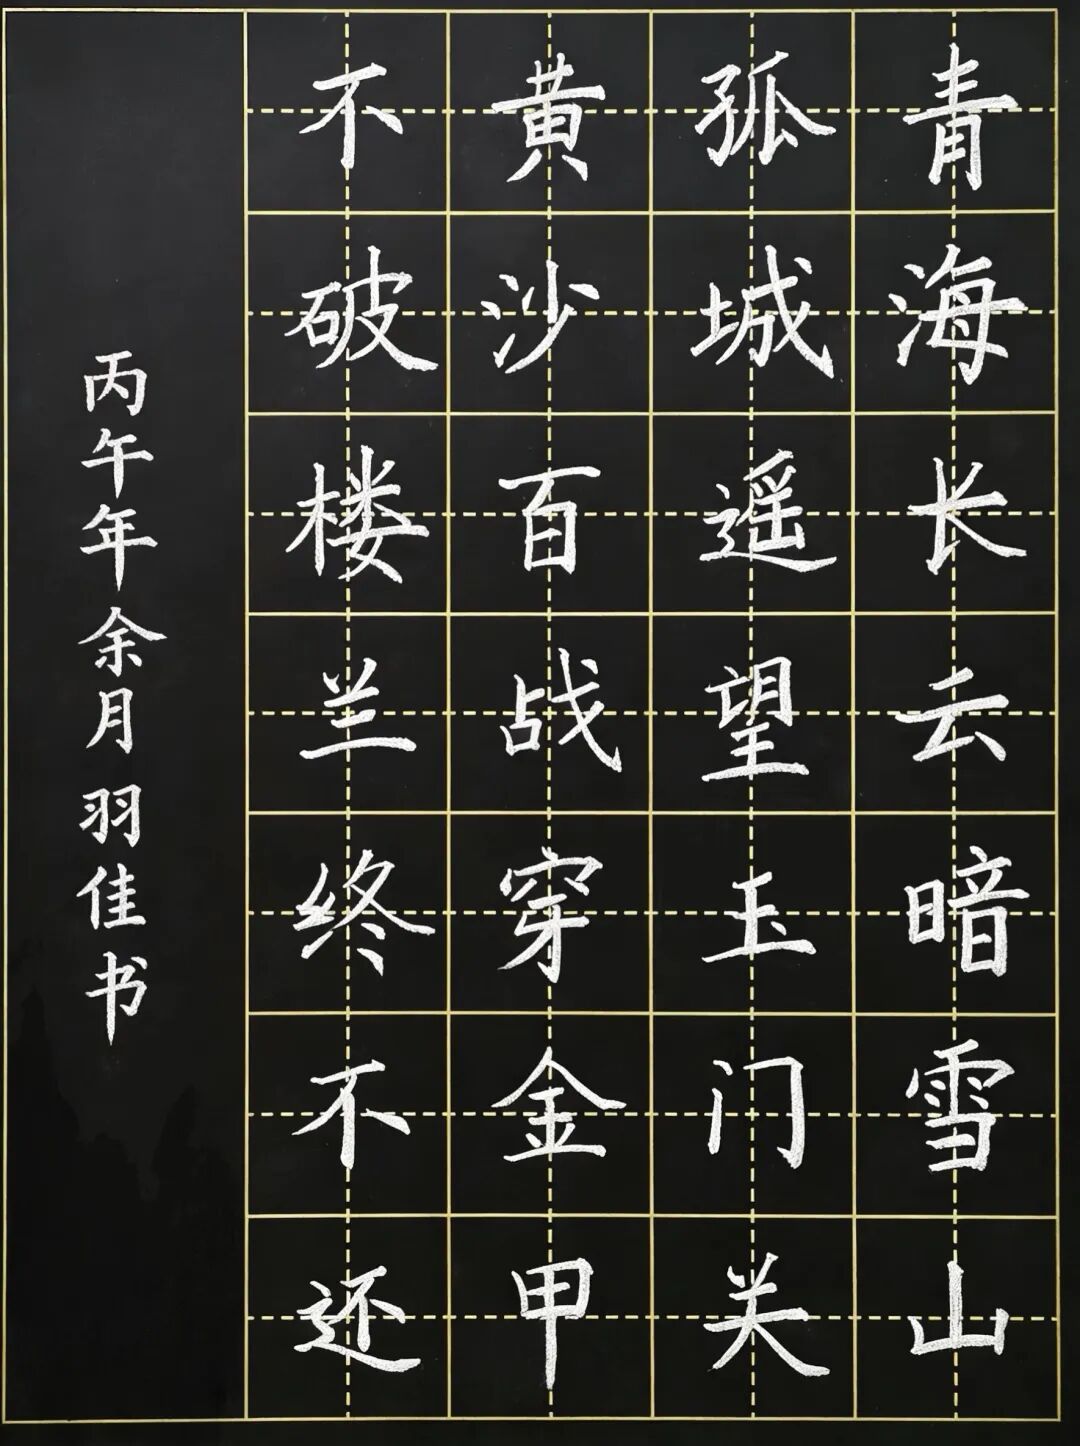 青海长云暗雪山
孤城遥望玉门关
黄沙百战穿金甲
不破楼兰终不还
丙午年余月羽佳书